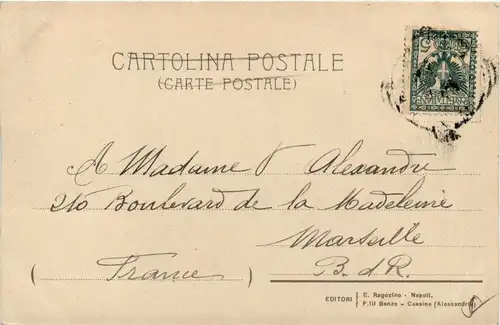 CARTOLINA POSTALE
(CARTE POSTALE)
A Madame Alexandre
210 Boulevard de la Madeleine
Marseille
(France) B. d R.
EDITORI { E. Ragozino - Napoli,
F.lli Benzo - Cassine (Alessandria)